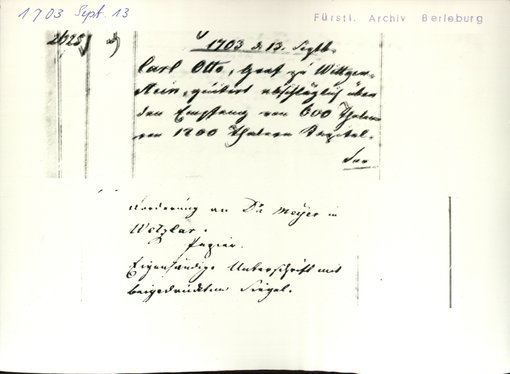 1703 Sept. 13
Fürstl. Archiv Berleburg
2625)
1703 d. 13. Septb.
Carl Otto, Graf zu Wittgen-
stein, quittirt abschläglich über
den Empfang von 600 Thalern
von 1800 Thalern Capital-
For
derung an Dr. Meyer in
Wetzlar.
Papier.
Eigenhändige Unterschrift mit
beigedrücktem Siegel.